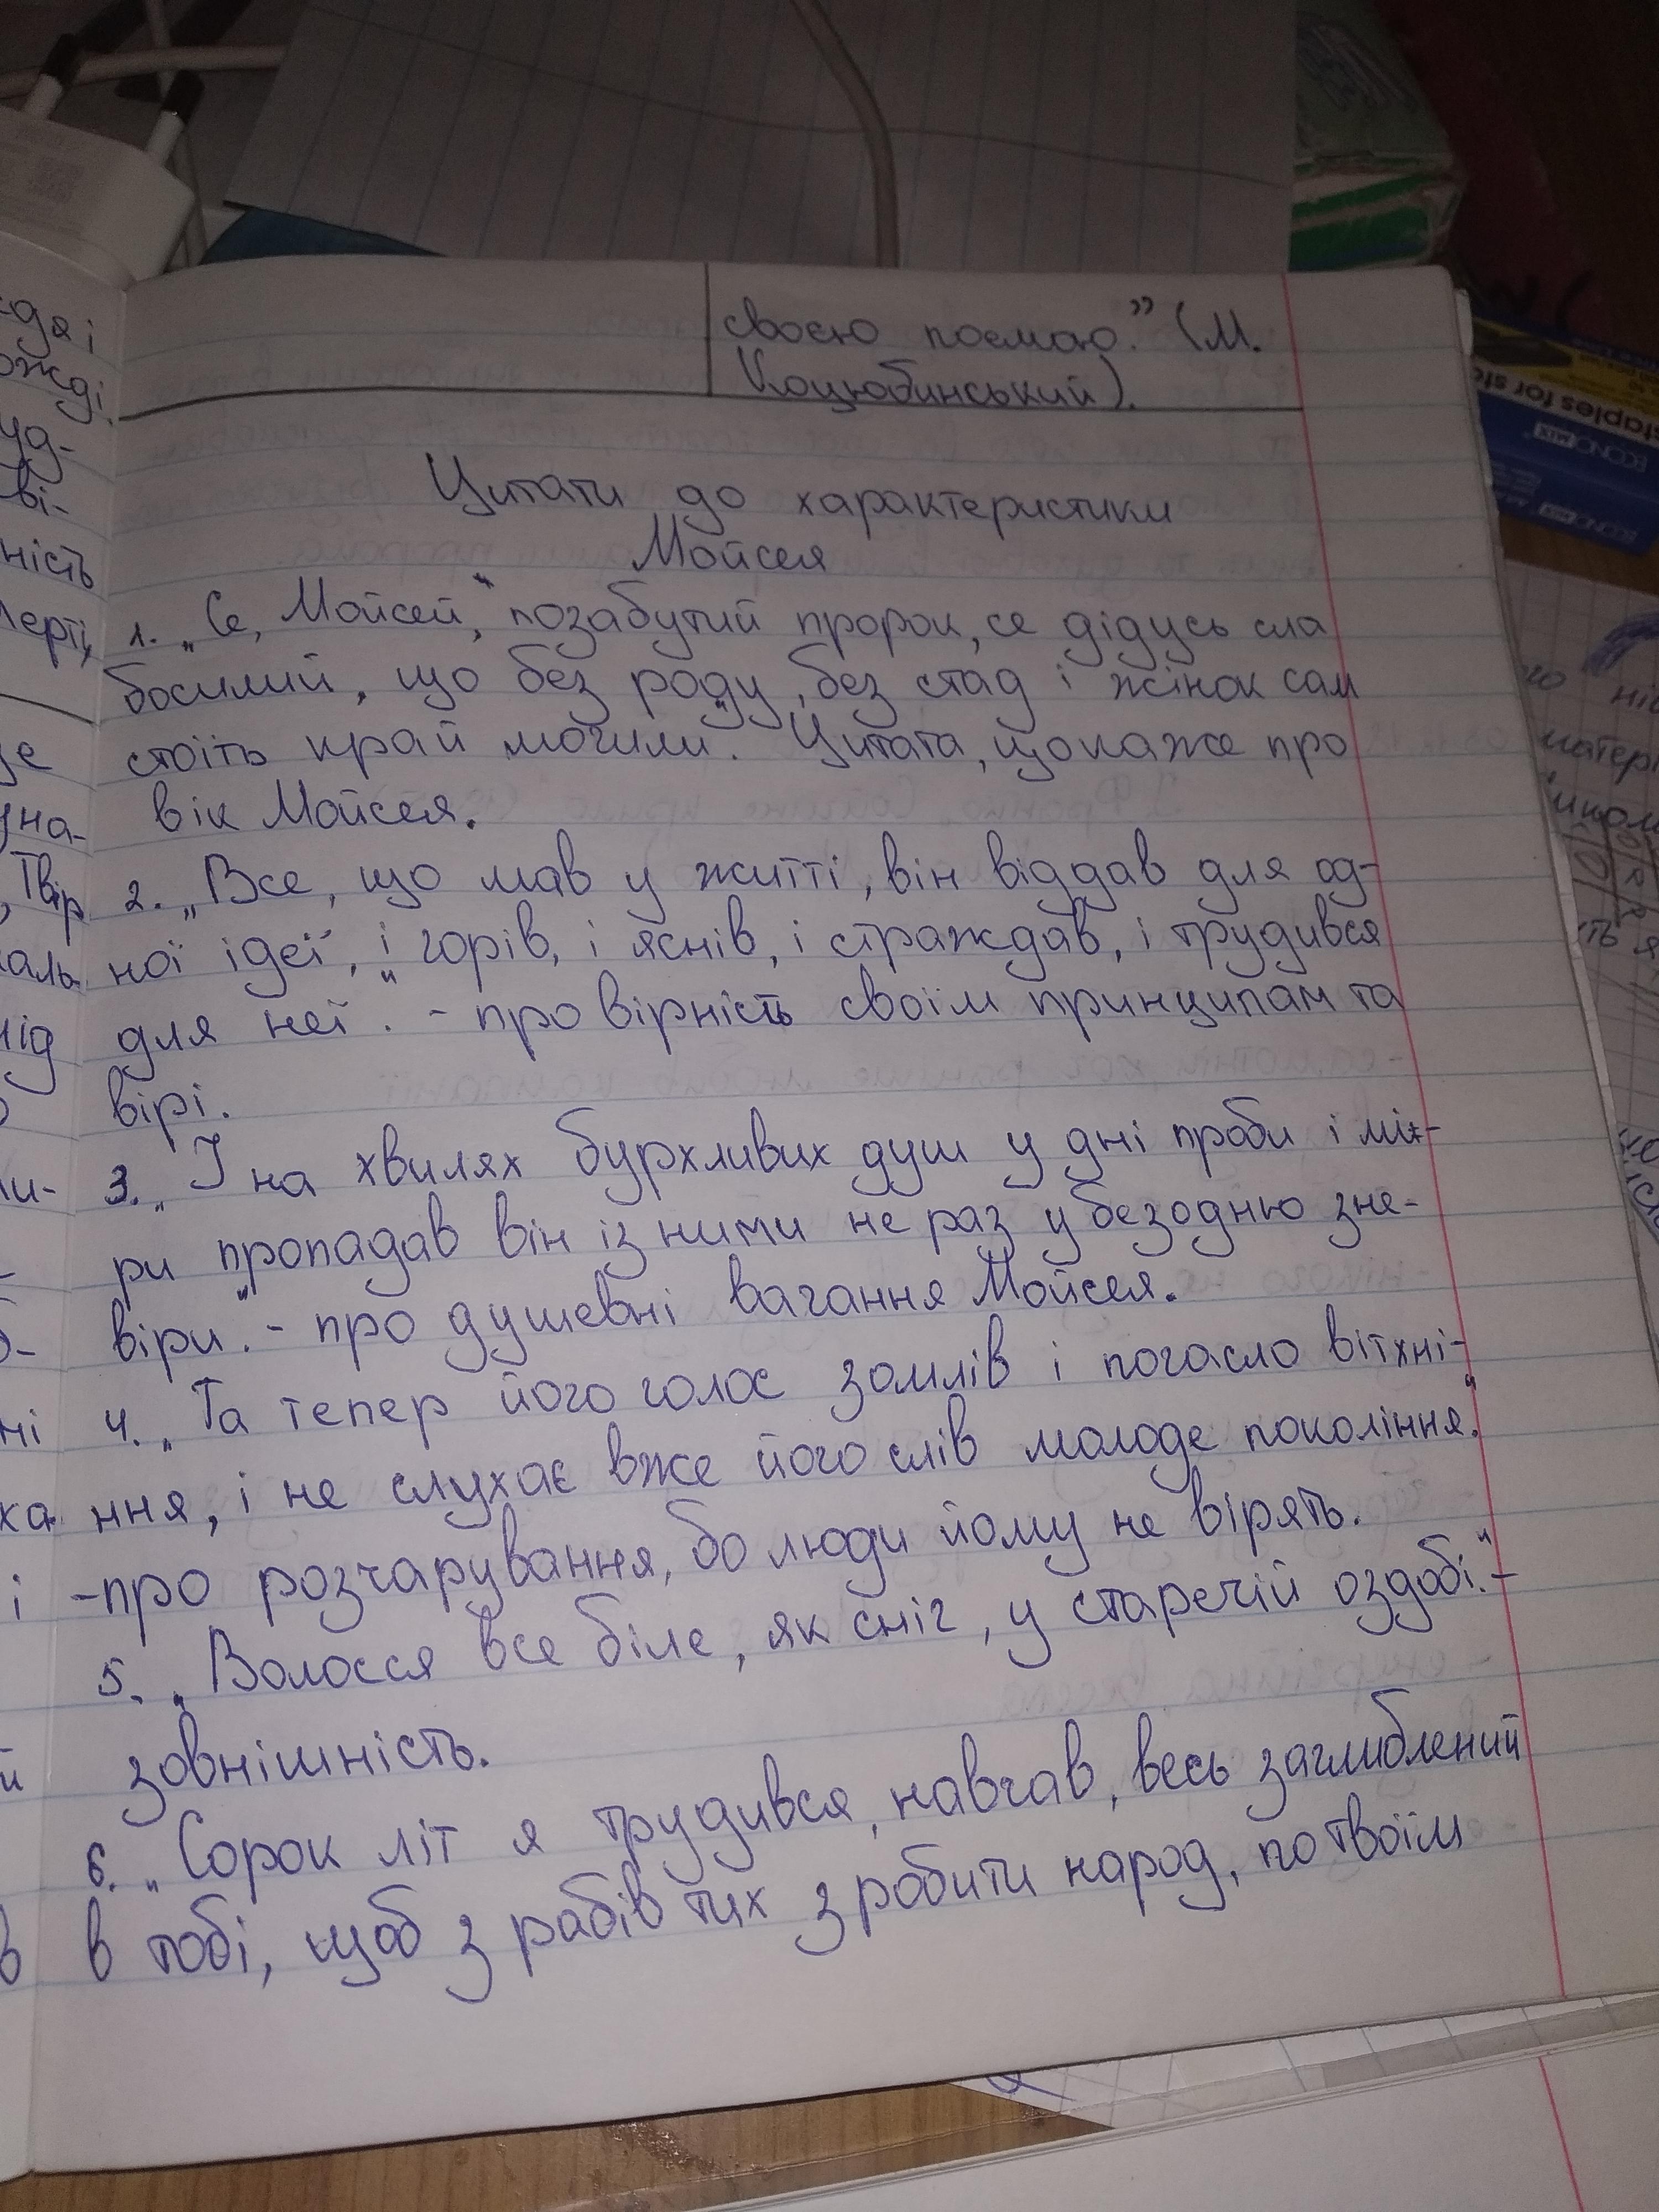 своєю поемаю.” (М.
Коцюбинський).
Цитати до характеристики
Мойсея
1. „Се, Мойсей," позабутий пророк, се дідусь сла
босилий, що без роду, без стад і жінок сам
стоїть край могили". Цитата, що каже про
вік Мойсея.
2. „Все, що мав у житті, він віддав для од-
ної ідеї, і горів, і яснів, і страждав, і трудився
для неї". - про вірність своїм принципам та
вірі.
3. „І на хвилях бурхливих душ у дні проби і мі-
ри пропадав він із ними не раз у безодню зне-
віри". - про душевні вагання Мойсея.
4. „Та тепер його голос зомлів і погасло вітхні-
ння, і не слухає вже його слів молоде покоління."
-про розчарування, бо люди йому не вірять.
5. „Волосся все біле, як сніг, у старечій оздобі." -
зовнішність.
6. „Сорок літ я трудився, навчав, весь заглиблений
в тобі, щоб з рабів тих зробити народ, по твоїм
staples for
ECONOMIX
ECONOMIX